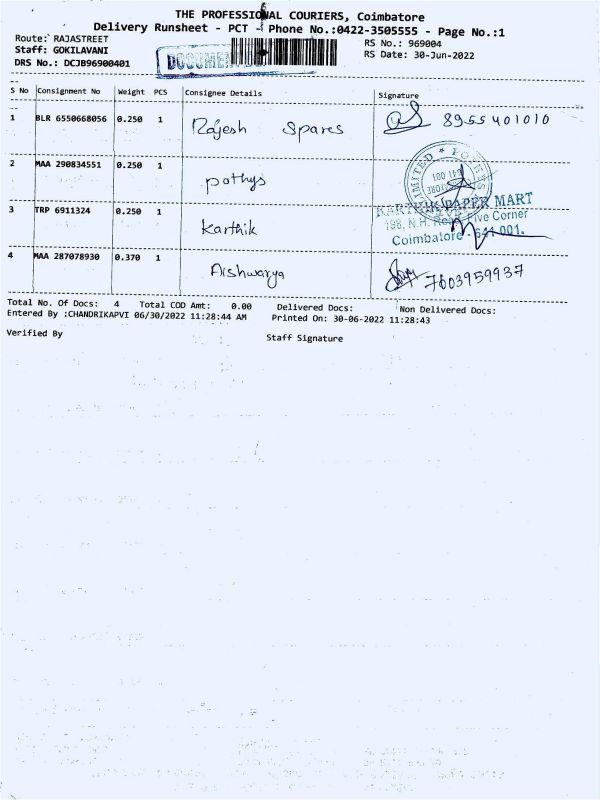 THE PROFESSIONAL COURIERS, Coimbatore
Delivery Runsheet - PCT - Phone No.:0422-3505555 - Page No.:1
Route: RAJASTREET
RS No.: 969004
Staff: GOKILAVANI
DOCUMENT
RS Date: 30-Jun-2022
DRS No.: DCJB96900401
S No Consignment No Weight PCS Consignee Details Signature
1 BLR 6550668056 0.250 1 Rajesh Spares 8955401010
2 MAA 290834551 0.250 1 pothys
3 TRP 6911324 0.250 1 Karthik
KARTHIK PAPER MART
198, N.H. Road, Five Corner
Coimbatore - 641 001.
4 MAA 287078930 0.370 1 Aishwarya 7603959937
Total No. Of Docs: 4 Total COD Amt: 0.00 Delivered Docs: Non Delivered Docs:
Entered By :CHANDRIKAPVI 06/30/2022 11:28:44 AM Printed On: 30-06-2022 11:28:43
Verified By Staff Signature